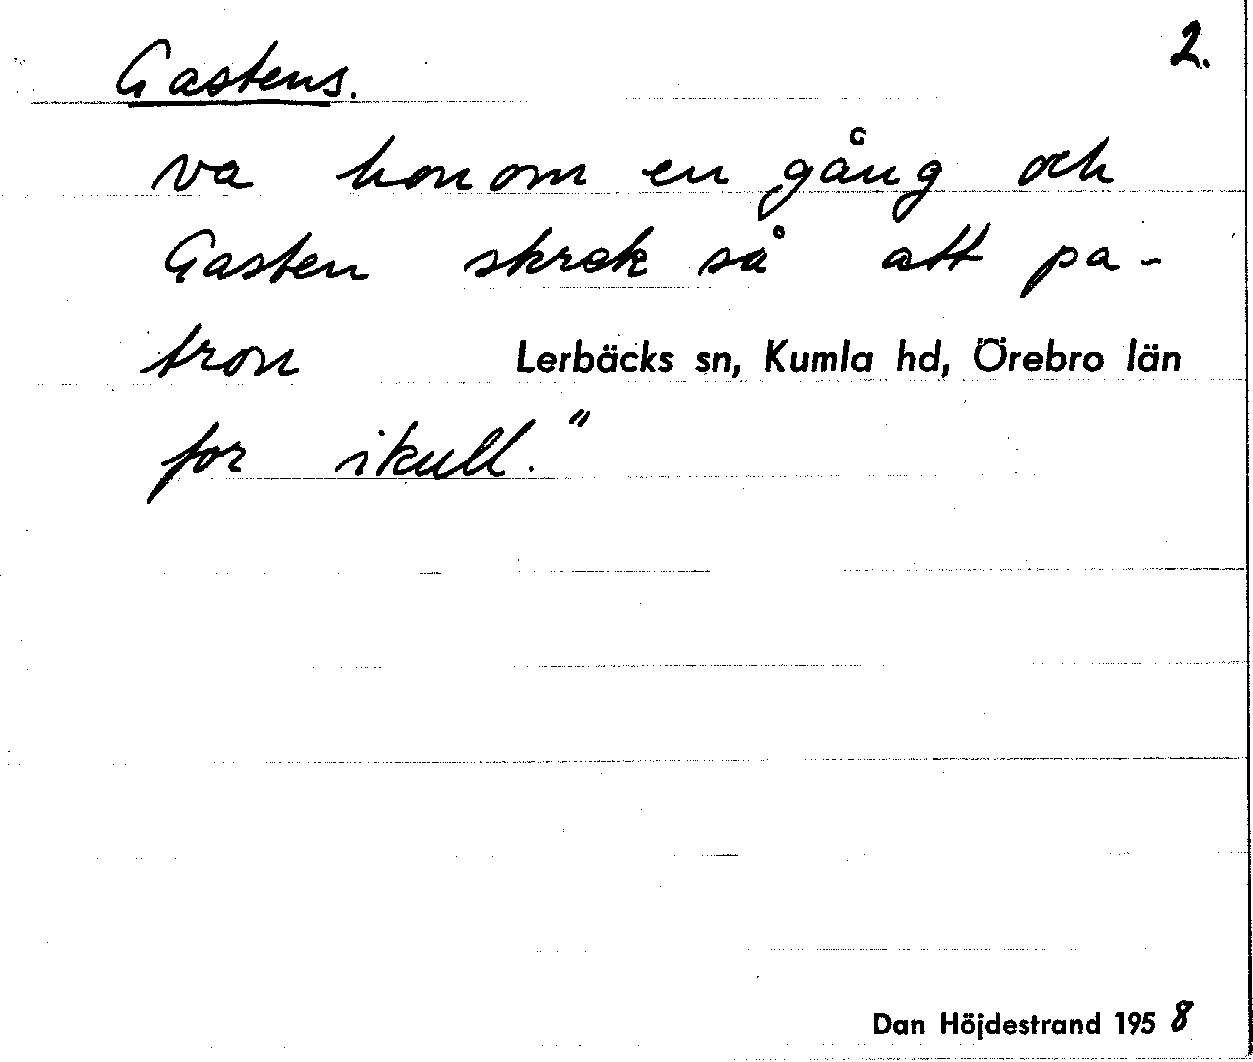 2.
Gastens.
va honom en gång och
Gasten skrek så att pa-
tron Lerbäcks sn, Kumla hd, Örebro län
for ikull."
Dan Höjdestrand 1958